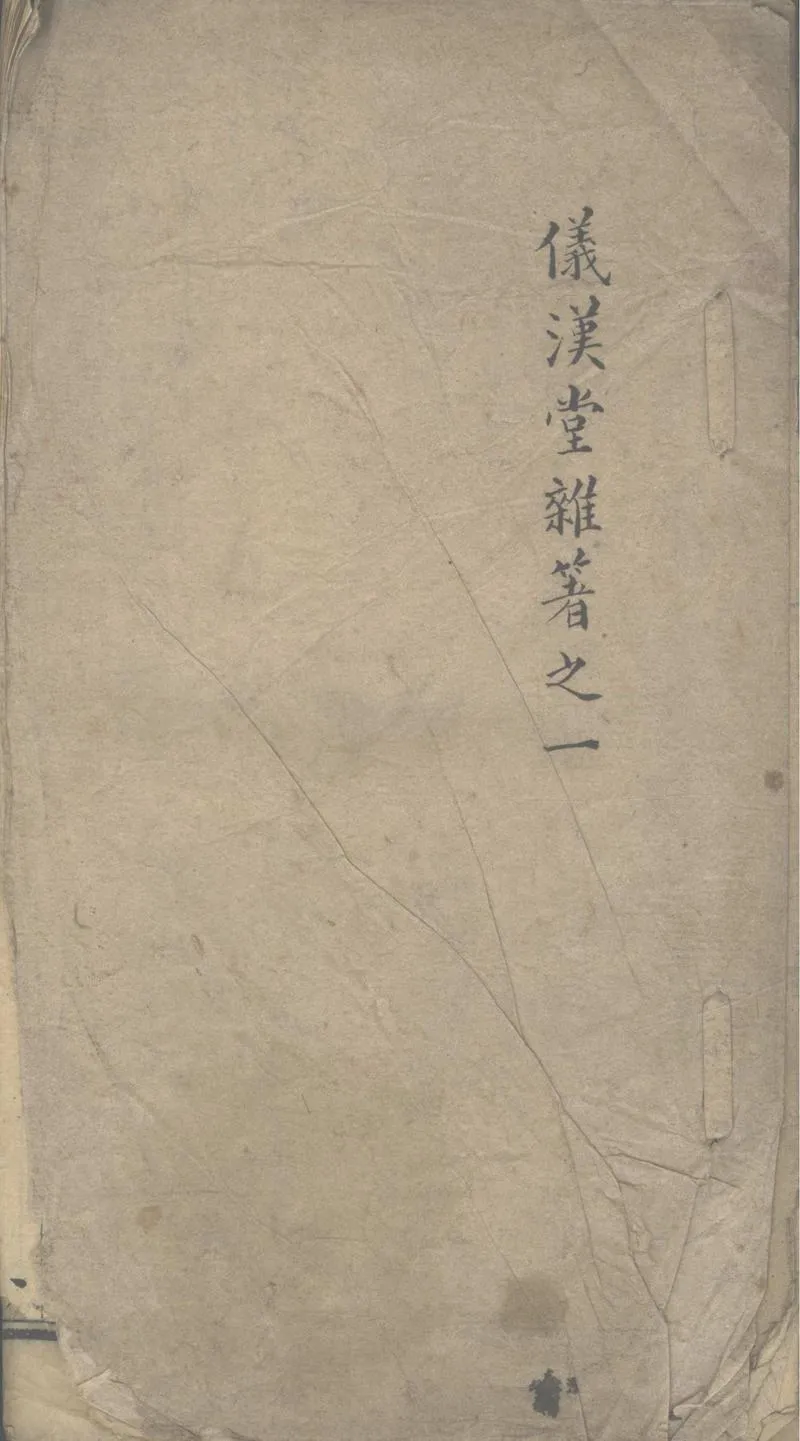 儀漢堂雜著之一